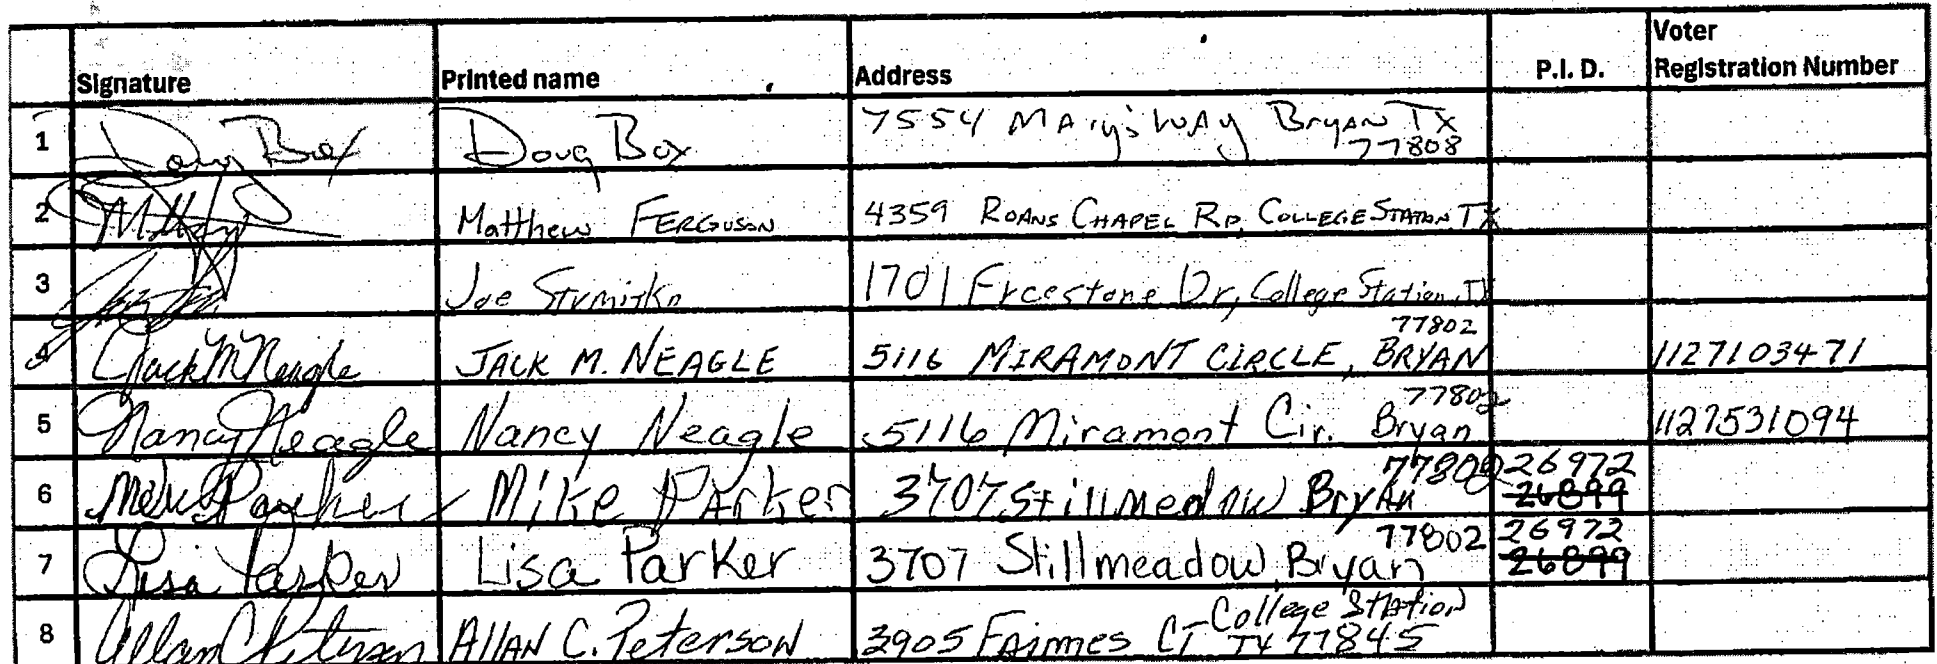 Signature Printed name Address P.I.D. Voter Registration Number
1 Doug Box Doug Box 7554 Mary's Way Bryan TX 77808
2 Matthew Ferguson 4359 Roans Chapel Rd, College Station TX
3 Joe 1701 Freestone Dr, College Station, TX
4 Jack M Neagle JACK M. NEAGLE 5116 MIRAMONT CIRCLE, BRYAN 77802 1127103471
5 Nancy Neagle Nancy Neagle 5116 Miramont Cir. Bryan 77802 1127531094
6 Mike Parker Mike Parker 3707 Stillmeadow Bryan 77802 26972 26899
7 Lisa Parker Lisa Parker 3707 Stillmeadow, Bryan 77802 26972 26899
8 Allan C Peterson Allan C. Peterson 3905 Ct College Station TX 77845